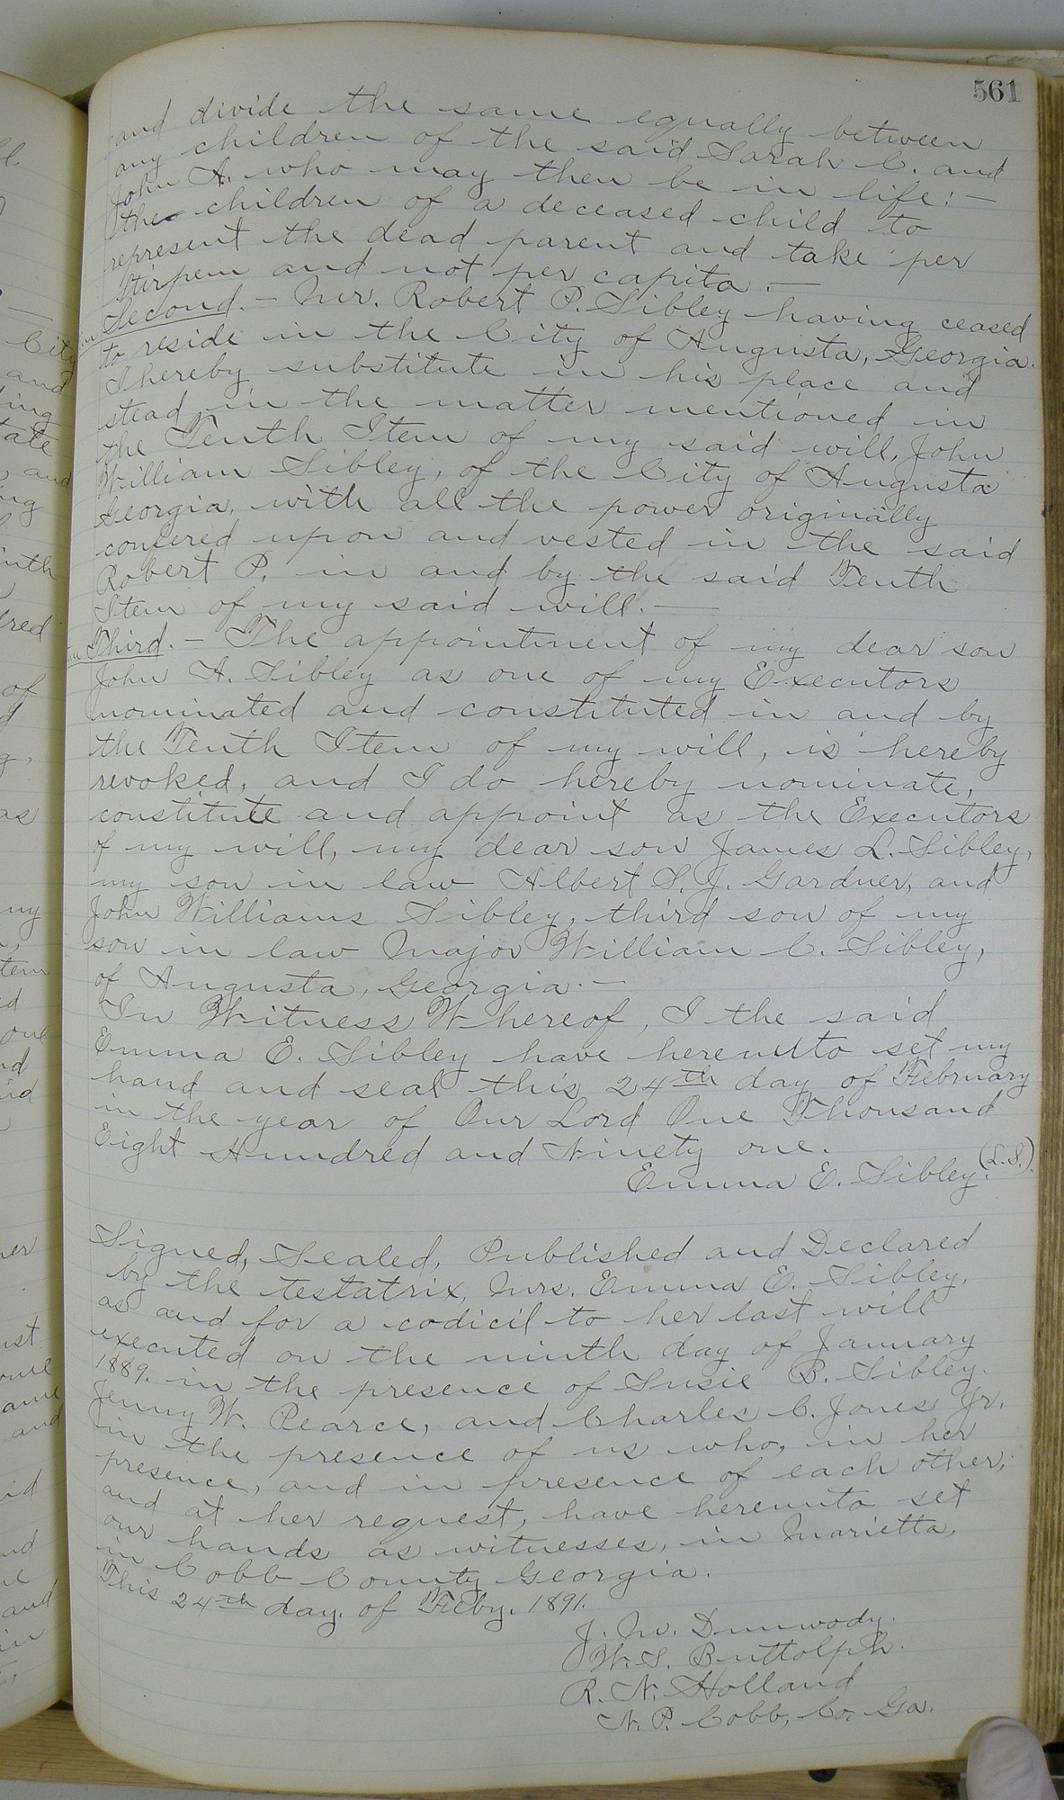 561
and divide the same equally between
any children of the said Sarah C. and
John A. who may then be in life:—
the children of a deceased child to
represent the dead parent and take per
Stirpem and not per capita.—
Second.— Mr. Robert P. Sibley having ceased
to reside in the City of Augusta, Georgia.
I hereby substitute in his place and
stead in the matter mentioned in
the Tenth Item of my said will, John
William Sibley, of the City of Augusta
Georgia, with all the power originally
confered upon and vested in the said
Robert P. in and by the said Tenth
Item of my said will.—
Third.— The appointment of my dear son
John A. Sibley as one of my Executors
nominated and constituted in and by
the Tenth Item of my will, is hereby
revoked, and I do hereby nominate,
constitute and appoint as the Executors
of my will, my dear son James L. Sibley,
my son in law Albert S. J. Gardner, and
John Williams Sibley, third son of my
son in law Major William C. Sibley,
of Augusta, Georgia.—
In Witness Whereof, I the said
Emma E. Sibley have hereunto set my
hand and seal this 24th day of February
in the year of Our Lord One Thousand
Eight Hundred and Ninety one.
Emma E. Sibley. (L.S.)
Signed, Sealed, Published and Declared
by the testatrix, Mrs. Emma E. Sibley,
as and for a codicil to her last will
executed on the ninth day of January
1889. in the presence of Susie B. Sibley.
Jenny W. Pearce, and Charles C. Jones Jr.
in the presence of us who, in her
presence, and in presence of each other,
and at her request, have hereunto set
our hands as witnesses, in Marietta,
in Cobb County Georgia.
This 24th day. of Feby. 1891.
J. M. Dunwody.
W. S. Buttolph.
R. N. Holland
N. P. Cobb, Co, Ga.